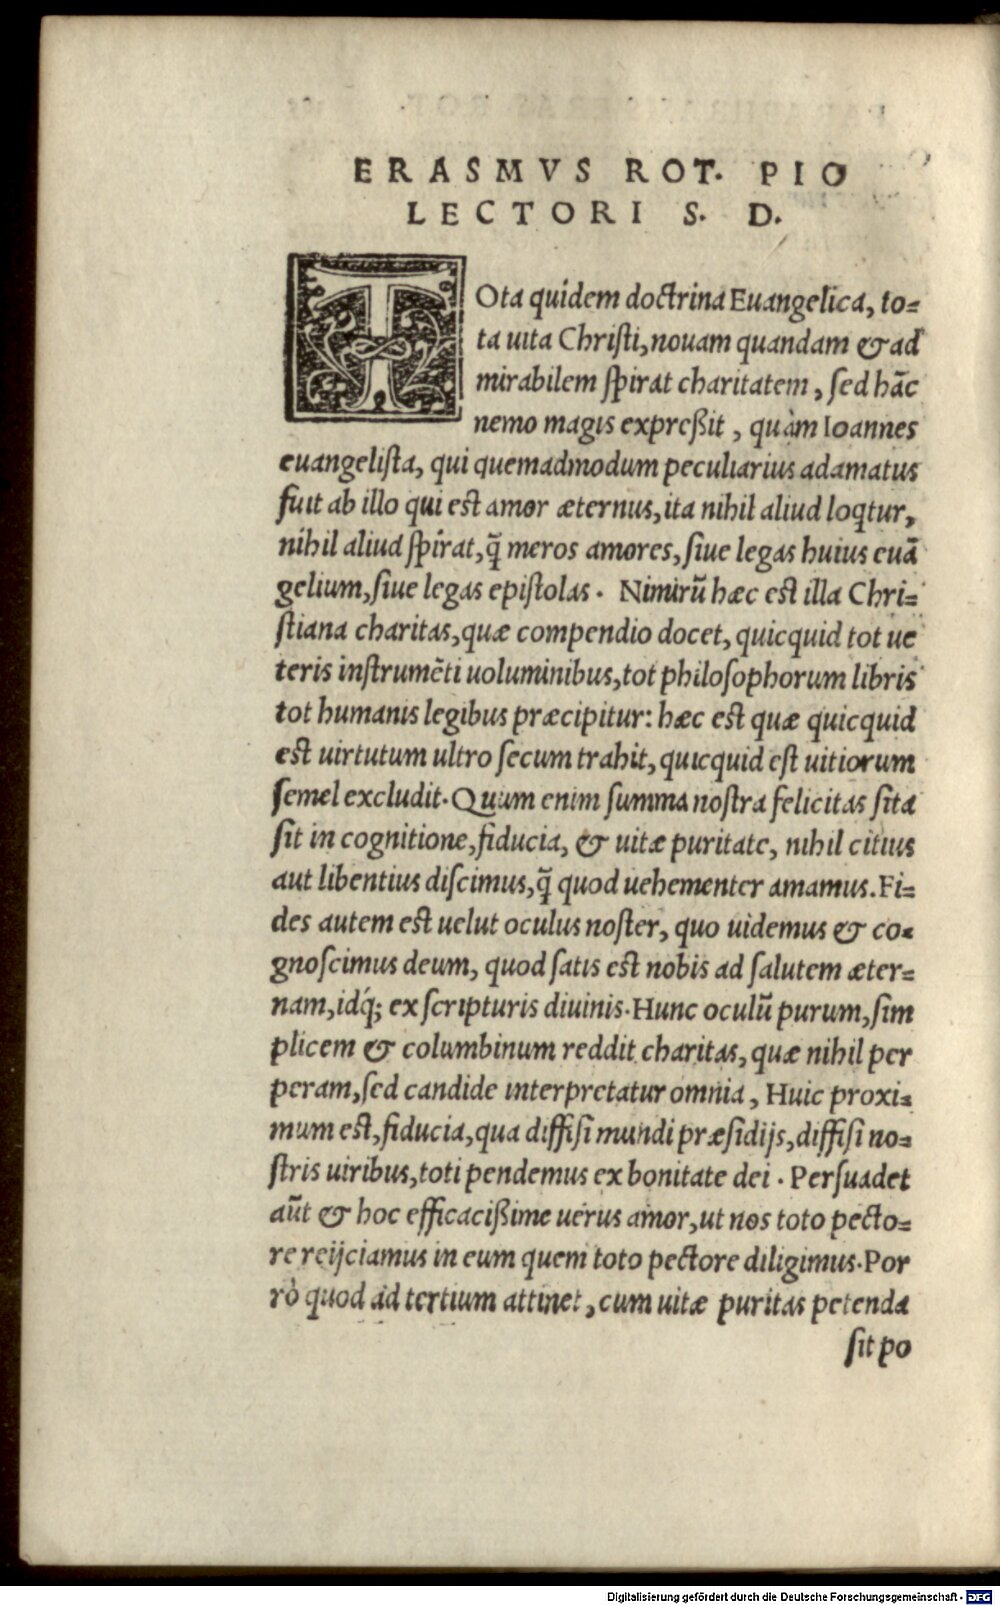 ERASMVS ROT. PIO
LECTORI S. D.
TOta quidem doctrina Euangelica, to=
ta uita Chriſti, nouam quandam & ad
mirabilem ſpirat charitatem, ſed hāc
nemo magis expreßit, quàm Ioannes
euangeliſta, qui quemadmodum peculiarius adamatus
fuit ab illo qui eſt amor æternus, ita nihil aliud loqtur,
nihil aliud ſpirat, q̃ meros amores, ſiue legas huius euā
gelium, ſiue legas epiſtolas. Nimirū hæc eſt illa Chri=
ſtiana charitas, quæ compendio docet, quicquid tot ue
teris inſtrumēti uoluminibus, tot philoſophorum libris
tot humanis legibus præcipitur: hæc eſt quæ quicquid
eſt uirtutum ultro ſecum trahit, quicquid eſt uitiorum
ſemel excludit. Quum enim ſumma noſtra felicitas ſita
ſit in cognitione, fiducia, & uitæ puritate, nihil citius
aut libentius diſcimus, q̃ quod uehementer amamus. Fi=
des autem eſt uelut oculus noſter, quo uidemus & co=
gnoſcimus deum, quod ſatis eſt nobis ad ſalutem æter=
nam, idq́; ex ſcripturis diuinis. Hunc oculū purum, ſim
plicem & columbinum reddit charitas, quæ nihil per
peram, ſed candide interpretatur omnia, Huic proxi=
mum eſt, fiducia, qua diffiſi mundi præſidijs, diffiſi no=
ſtris uiribus, toti pendemus ex bonitate dei. Perſuadet
aūt & hoc efficacißime uerus amor, ut nos toto pecto=
re reijciamus in eum quem toto pectore diligimus. Por
rò quod ad tertium attinet, cum uitæ puritas petenda
ſit po
Digitalisierung gefördert durch die Deutsche Forschungsgemeinschaft - DFG